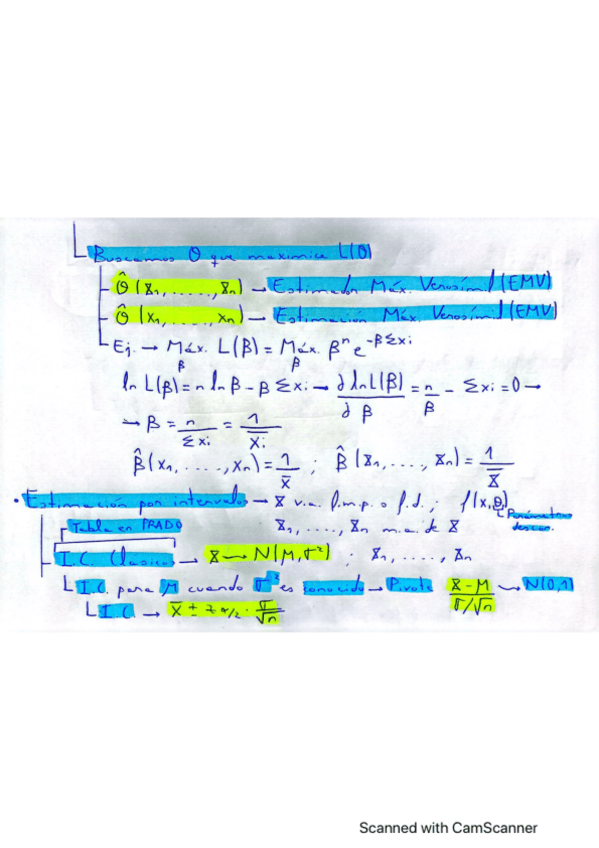 Buscamos θ que maximice L(θ)
θ̂ (X₁, ....., Xₙ) → Estimador Máx. Verosímil (EMV)
θ̂ (x₁, ....., xₙ) → Estimación Máx. Verosímil (EMV)
Ej. → Máx. L(β) = Máx. βⁿ e^(-βΣxi)
β β
ln L(β) = n ln β - β Σxi → ∂ ln L(β) / ∂β = n/β - Σxi = 0 →
→ β = n/Σxi = 1/X̄i
β̂ (x₁, ....., xₙ) = 1/x̄ ; β̂ (X₁, ...., Xₙ) = 1/X̄
• Estimación por intervalos → X v.a. f.m.p. o f.d. ; f(x,θ)
Parámetros
Tabla en PRADO X₁, ....., Xₙ m.a. de X descon.
I.C. Clásicos → X → N(M,σ²) ; X₁, ...., Xₙ
I.C. para M cuando σ² es conocido → Pivote X̄-M / σ/√n → N(0,1)
I.C. → X ± z α/2 · σ/√n
Scanned with CamScanner